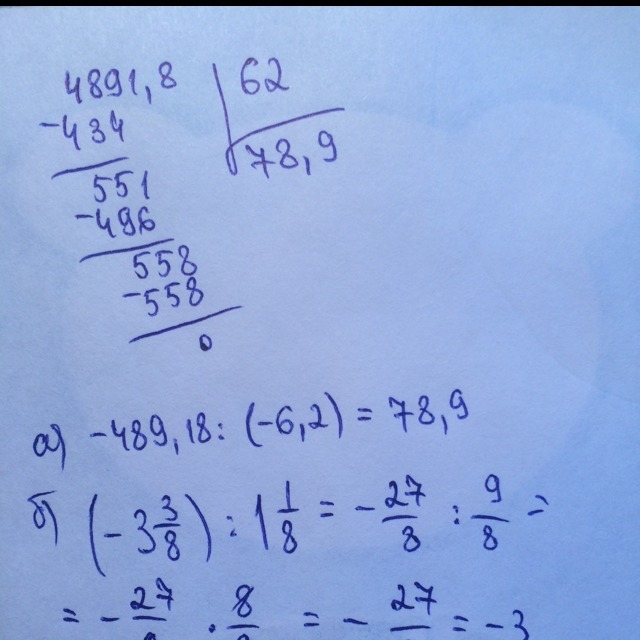 4891,8 | 62
-434 78,9
551
-496
558
-558
0
а) -489,18 : (-6,2) = 78,9
б) (-3 3/8) : 1 1/8 = - 27/8 : 9/8 =
= - 27/ · 8/ = - 27/ = -3